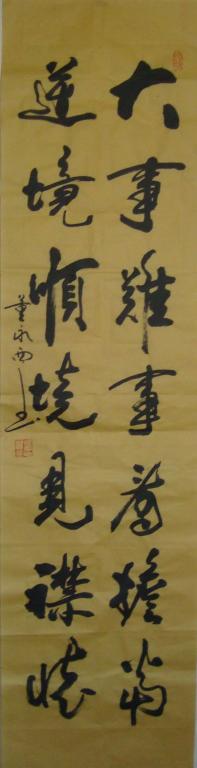 大事難事看擔當
逆境順境見襟懷
董永西书